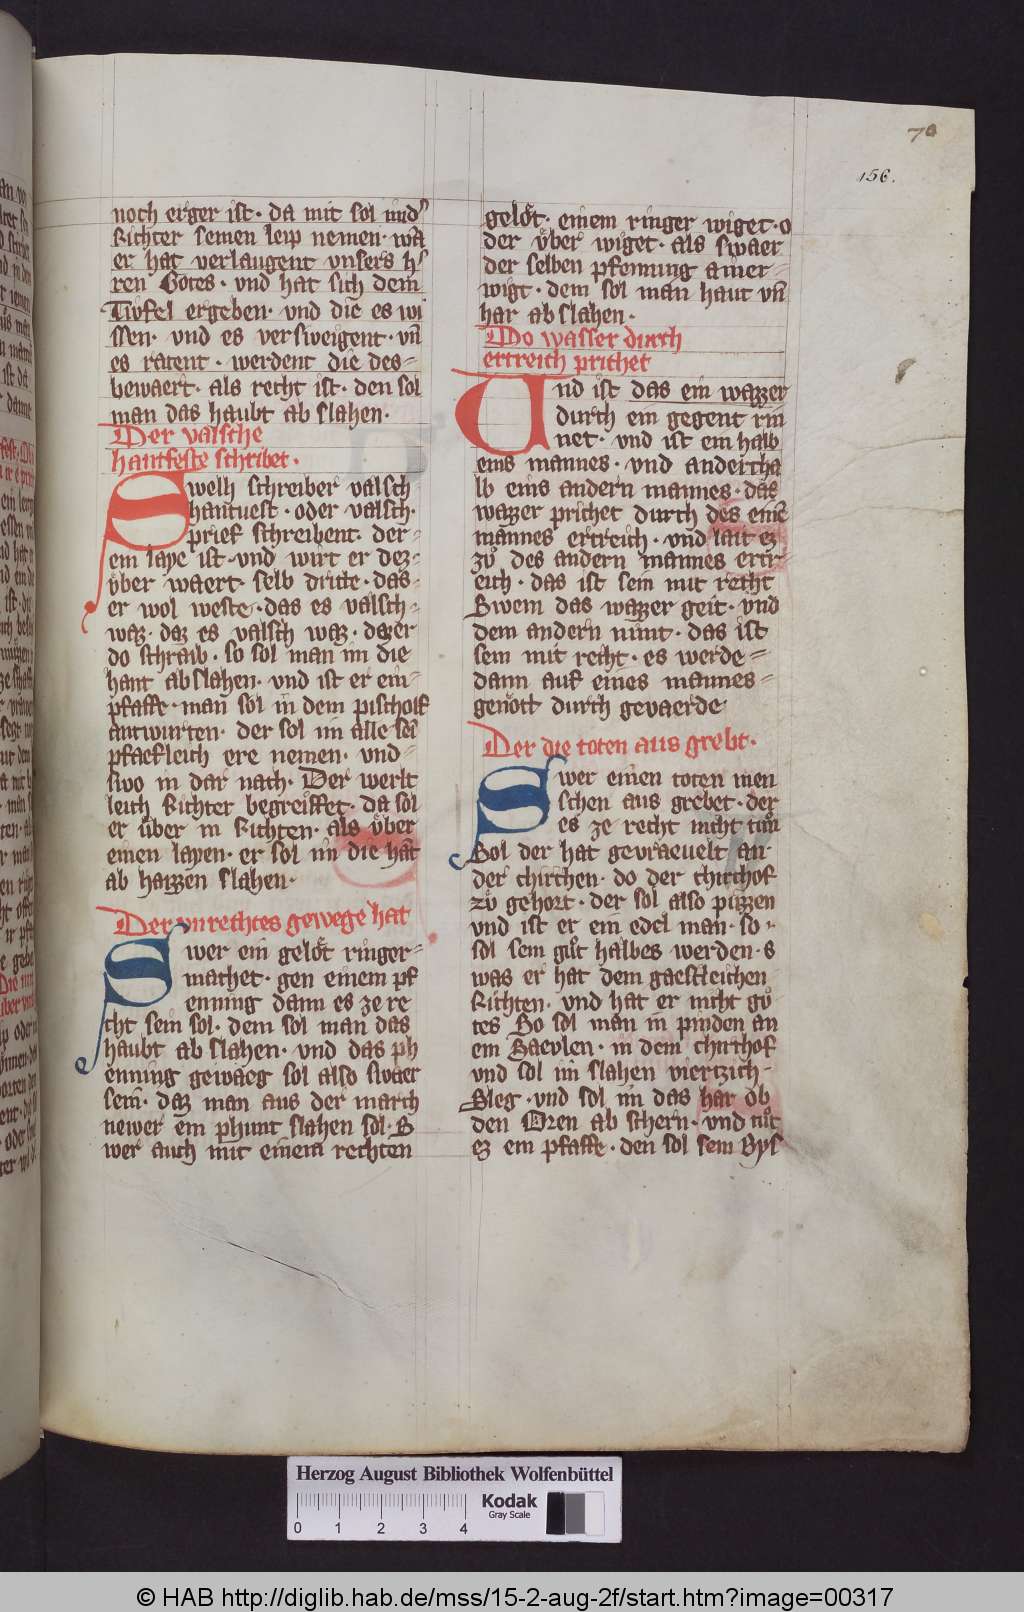 70
156.
noch erger ist · da mit sol im dˀ
Richter seinen leip nemen · wā
er hat verlaugent vnsers hˀ
ren Gotes · vnd hat sich dem
Tiufel ergeben · vnd die es wi
ssen · vnd es versweigent · vn̄
es ratent · werdent die des-
bewaert · als recht ist · den sol
man das haubt ab slahen ·
Der valsche
hantfeste schribet ·
Swelh schreiber valsch
hantuest · oder valsch ·
prief schreibent · der-
em laye ist · vnd wirt er dez-
vͤber waert · selb dritte · das-
er wol weste · das es valsch-
waz · daz es valsch waz · dazer
do schraib · so sol man im die
hant abslahen · vnd ist er ein-
pfaffe · man sol in dem pischolf
antwurten · der sol im alle sei
pfaefleich ere nemen · vnd-
swo in dar nach · Der werlt
leich Richter begreiffet · da sol
er vͤber in Richten · als vͤber
einen layen · er sol im die hāt
ab haizzen slahen ·
Der vnrechtes gewege hat
Swer ein geloͤt ringer-
machet · gen einem pf
enning dann es ze re
cht sein sol · dem sol man das
haubt ab slahen · vnd das ph
enning gewaeg sol also swaer
sein · daz man aus der march
newer ein phunt slahen sol · S
wer auch mit einem rechten
geloͤt · einem ringer wiget · o
der vͤber wiget · als swaer
der selben pfenning ainer-
wigt · dem sol man haut vn̄
har ab slahen ·
Do wasser durch
ertreich prichet
Und ist das ein wazzer
durch ein gegent rin
net · vnd ist ein halb
eins mannes · vnd andertha
lb eins andern mannes · das
wazzer prichet durch des einē
mannes ertreich · vnd lait ez
zuͦ des andern mannes ertr
eich · das ist sein mit recht
Swem das wazzer geit · vnd
dem andern nimt · das ist
sein mit recht · es werde=
dann auf eines mannes-
genoͤtt durch gevaerde
Der die toten aus grebt ·
Swer einen toten men
schen aus grebet · der
es ze recht nicht tuͦn
Sol der hat gevraeuelt an-
der chirchen · do der chirchof
zuͦ gehort · der sol also puzzen
vnd ist er ein edel man · so ·
sol sein guͦt halbes werden · s
was er hat dem gaestleichen
Richten · vnd hat er nicht guͦ
tes So sol man in pinden an
ein Saevlen · in dem chirchof
vnd sol im slahen viertzich-
Sleg · vnd sol im das har ob
den Oren ab schern · vnd tuͦt
ez ein pfaffe · den sol sein Bys
Herzog August Bibliothek Wolfenbüttel
Kodak
Gray Scale
0 1 2 3 4
© HAB http://diglib.hab.de/mss/15-2-aug-2f/start.htm?image=00317